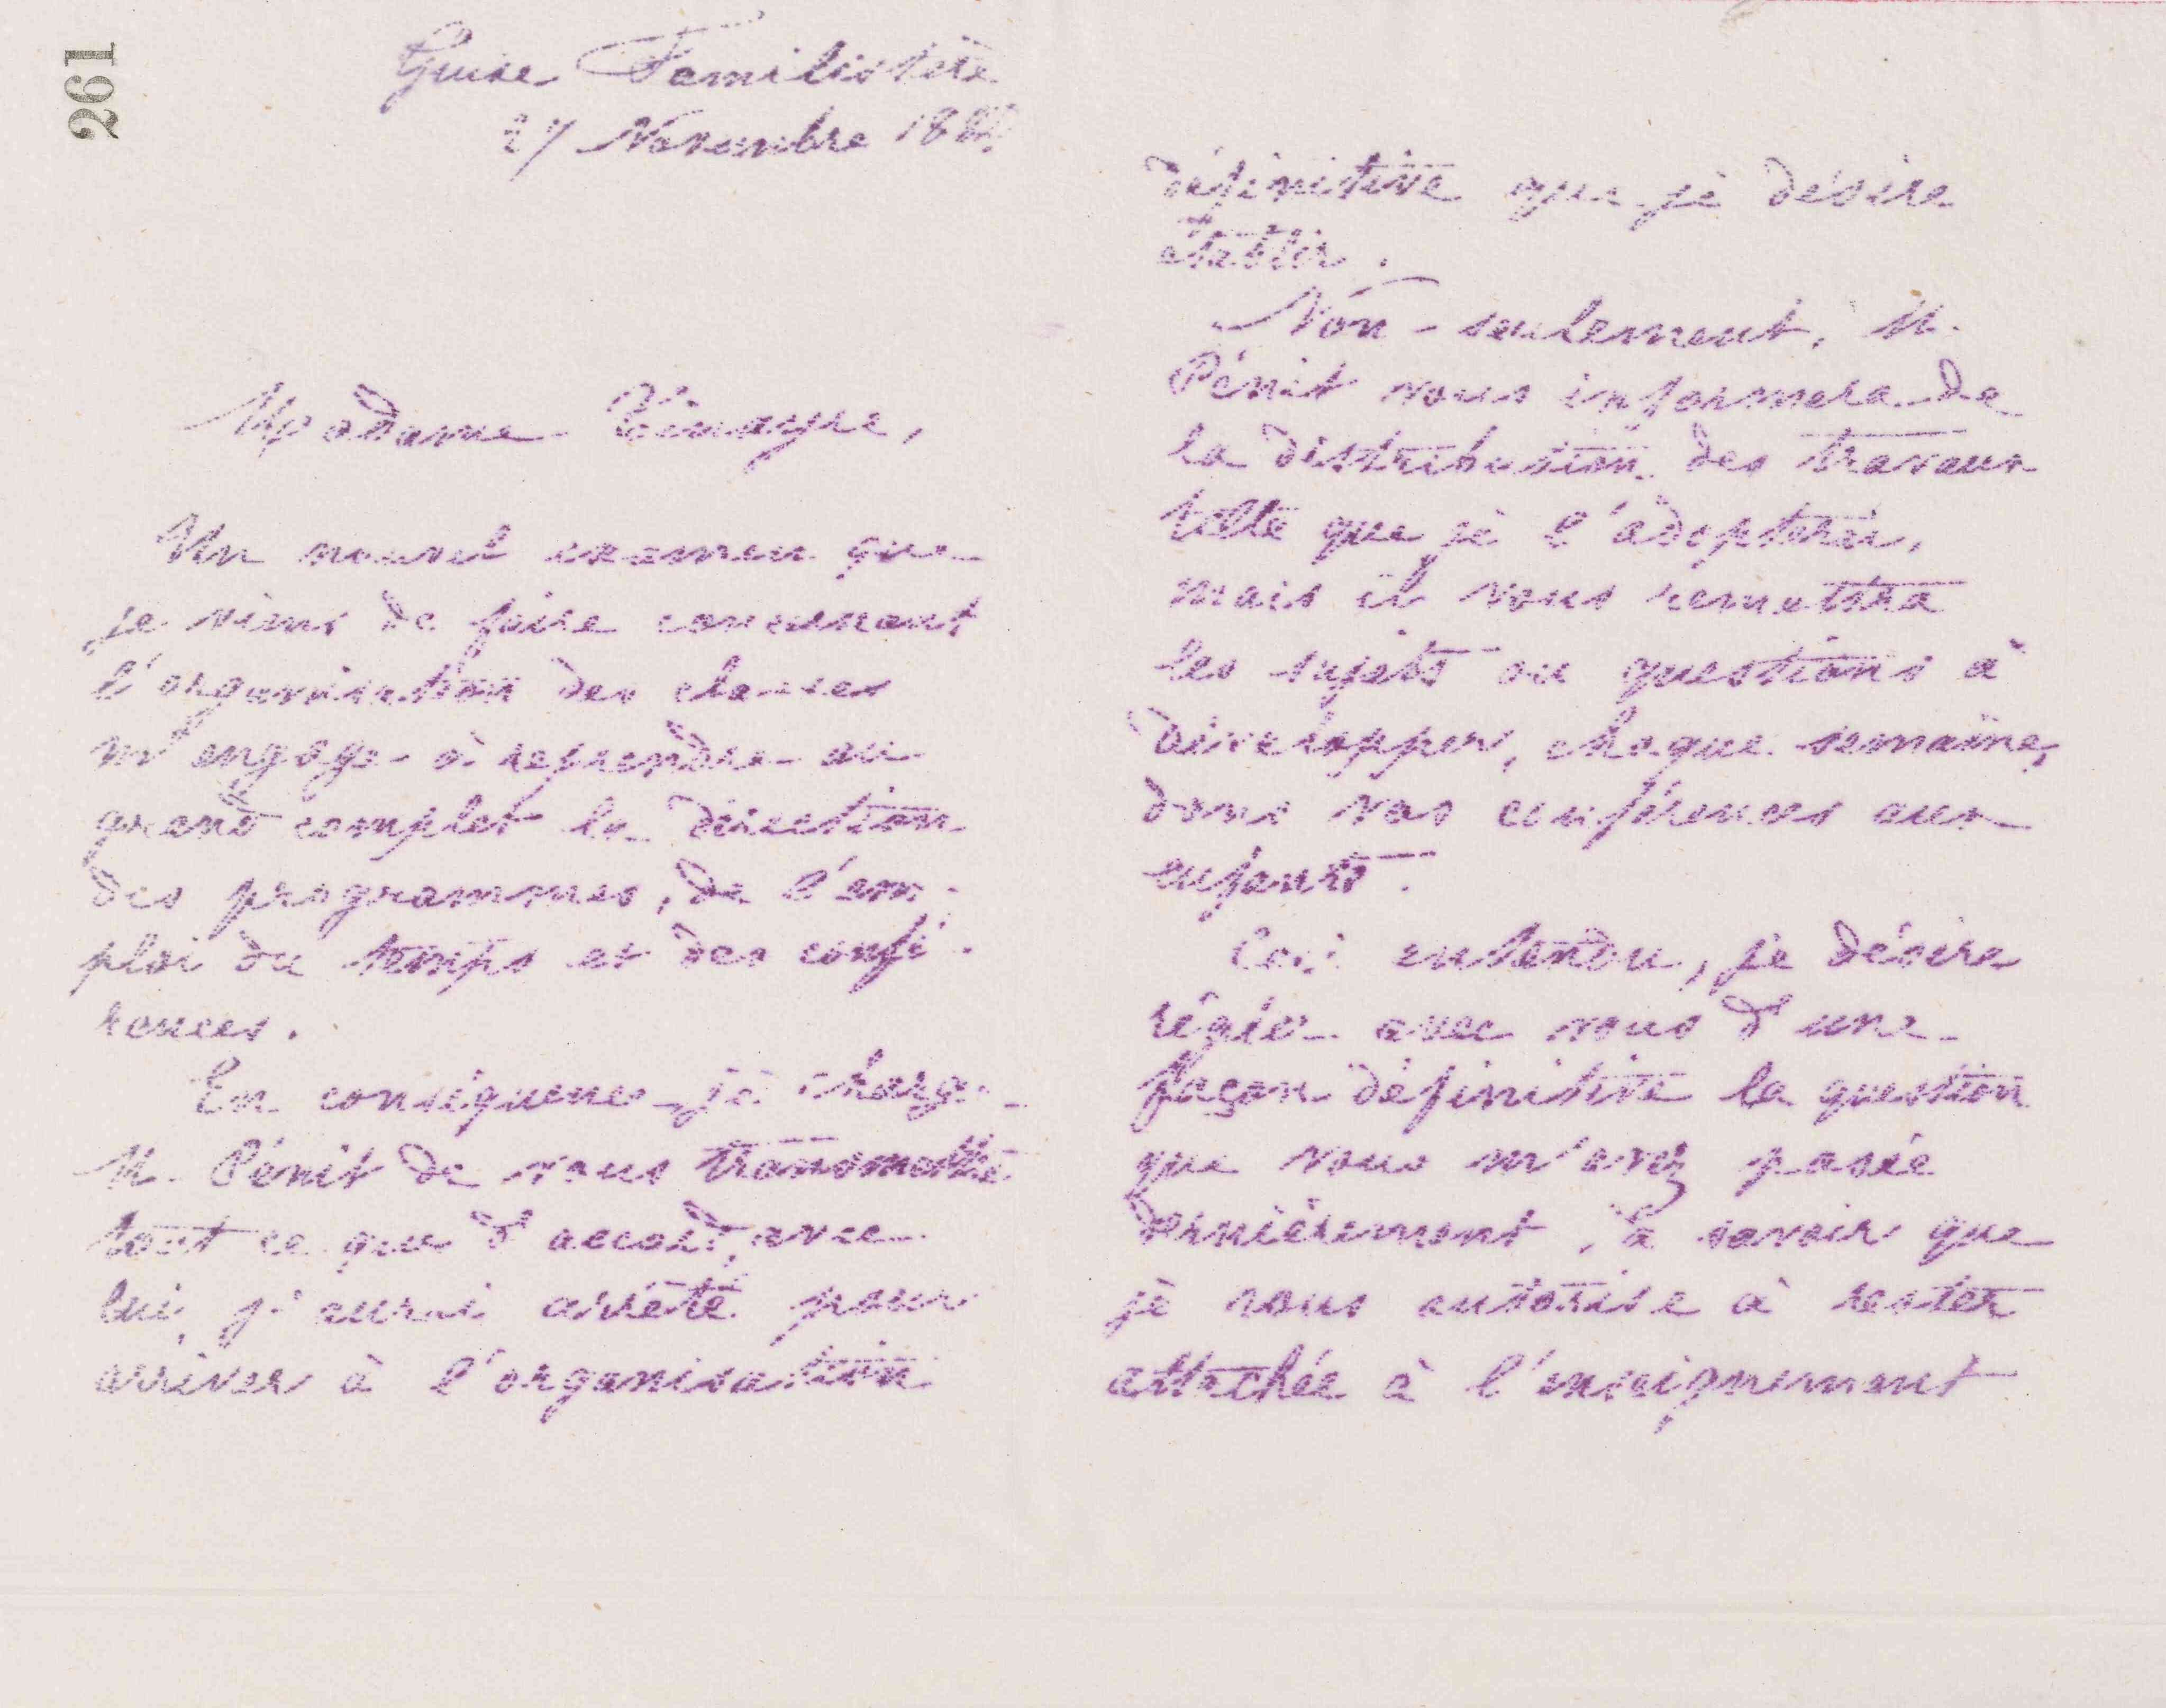 261
Guise Familistère
27 Novembre 188
Madame Tinayre,
Un nouvel examen que
je viens de faire concernant
l'organisation des classes
m'engage à reprendre au
grand complet la direction
des programmes, de l'em-
ploi du temps et des confé-
rences.
En conséquence je charge
M. Pénit de vous transmettre
tout ce que d'accord, avec
lui, j'aurai arrêté pour
arriver à l'organisation
définitive que je désire
établir.
Non-seulement, M.
Pénit vous informera de
la distribution des travaux
telle que je l'adopterai,
mais il vous remettra
les sujets ou questions à
développer, chaque semaine,
dans vos conférences aux
enfants.
Ceci entendu, je désire
régler avec vous d'une
façon définitive la question
que vous m'avez posée
dernièrement, à savoir que
je vous autorise à rester
attachée à l'enseignement